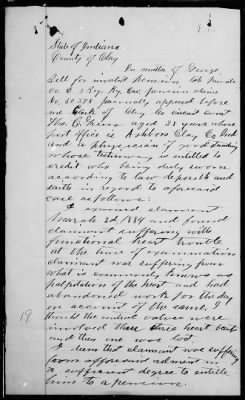 State of Indiana
County of Clay
In matter of George
Bell for invalid pension Co.
Co. E 2 Reg. Ky. Cav. pension claim
No. 60378 personally appeared before
me clerk of Clay Co circuit court
Geo. C. aged 38 years whose
post office is Clay Co Ind
and a physician of good standing
whose testimony is entitled to
credit who being duly sworn
according to law deposeth and
saith in regard to aforesaid
case as follows:
I examined claimant
March 3d 1884 and found
claimant suffering with
functional heart trouble
at the time of examination
claimant was suffering from
what is commonly known as
palpitation of the heart and had
abandoned work for the day
on account of the same. I
thought the valves were
involved these three heart beats
and then one was lost.
I deem that claimant was suffering
from ailment in
a sufficient degree to entitle
him to a pension.